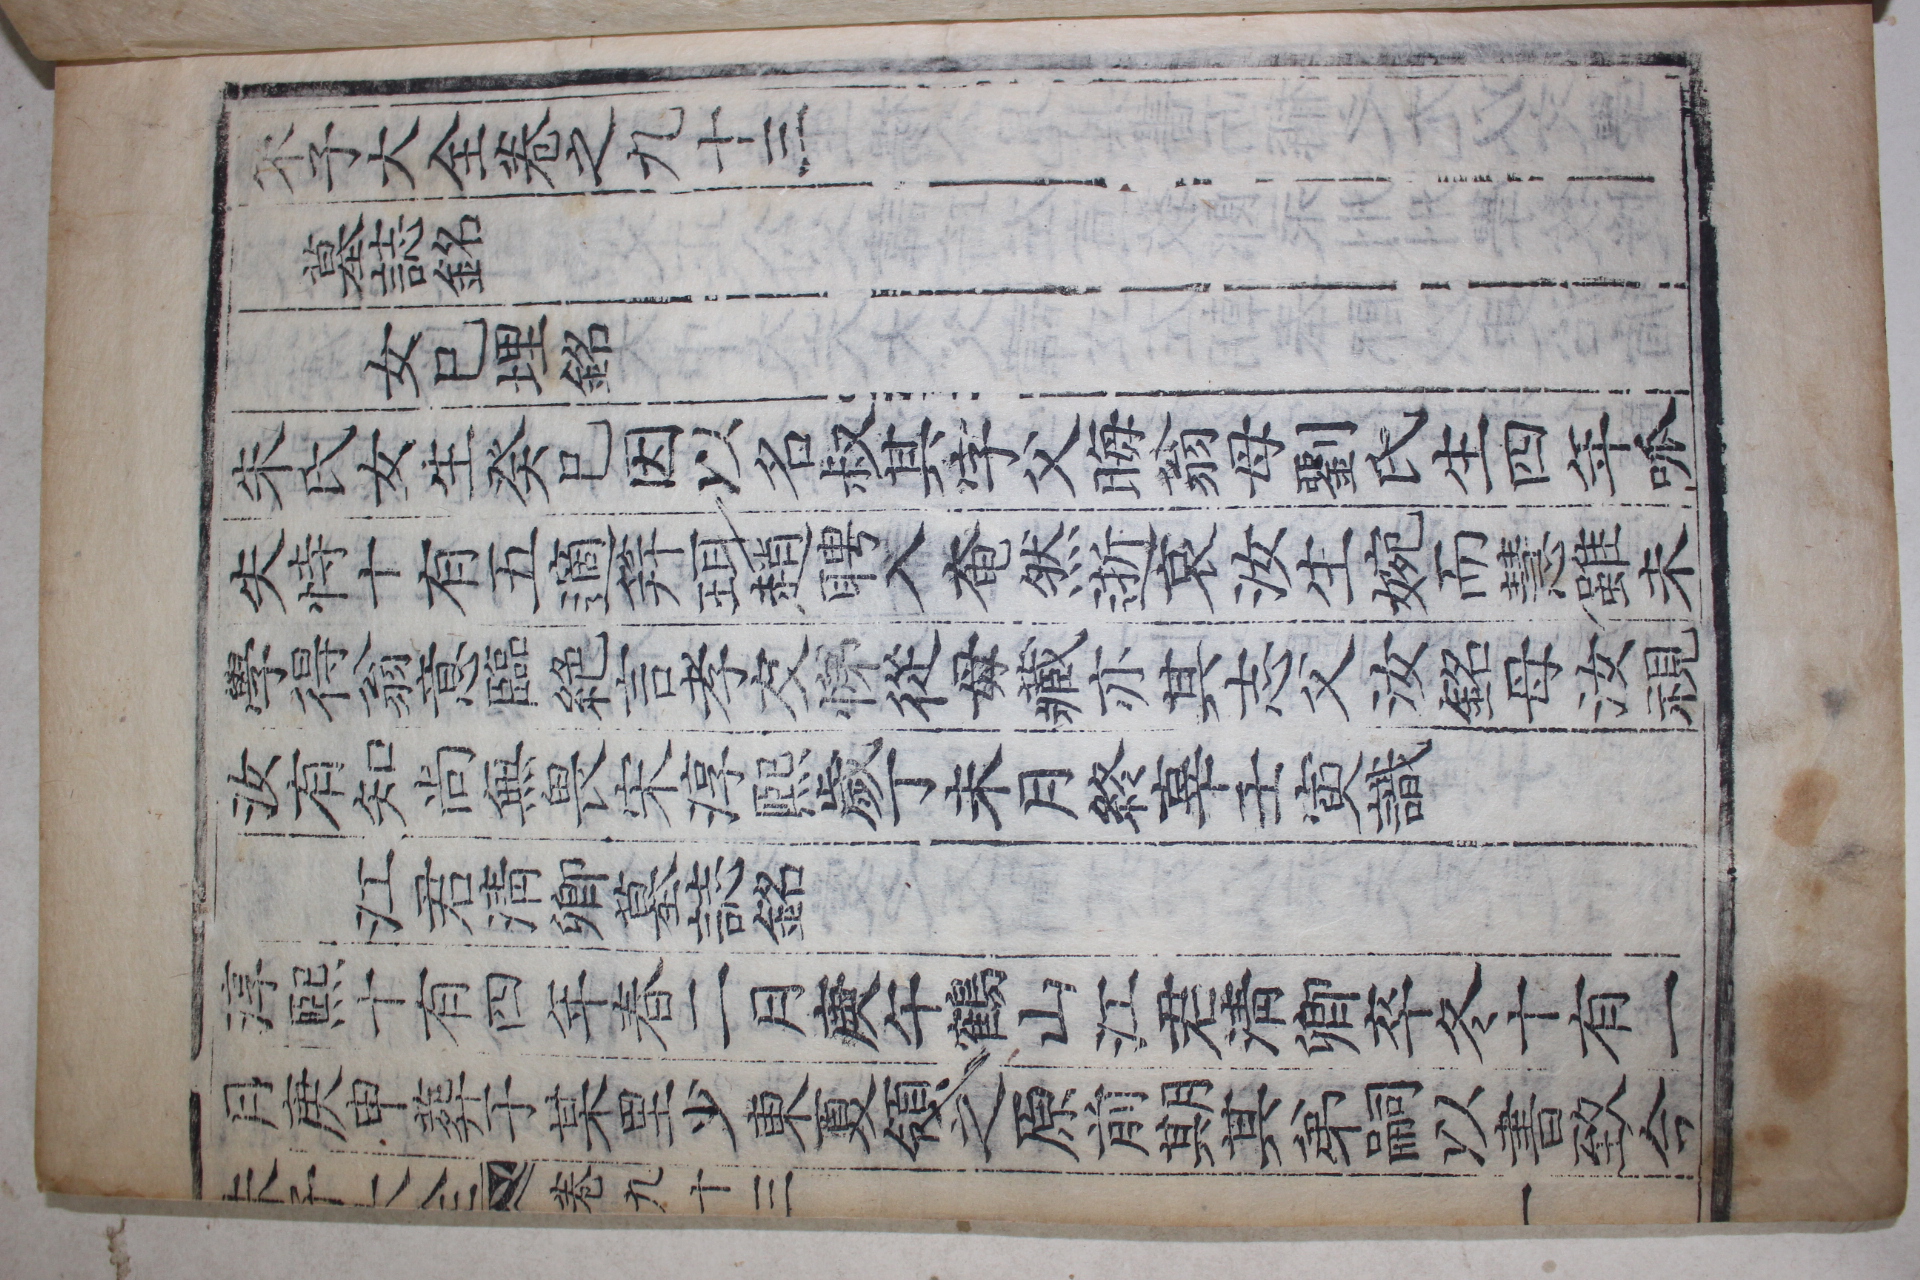 朱子大全卷之九十三
墓誌銘
女巳埋銘
朱氏女生癸巳因以名叔其字父晦翁母劉氏生四年呱
失恃十有五適笄珥趙聘入奄然逝哀汝生婉而慧雖未
學得翁意臨絕言孝友悌從母藏亦其志父汝銘母汝視
汝有知尚無畏宋淳熙歲丁未月終辜壬寅識
江君淸卿墓誌銘
淳熙十有四年春二月庚午鶴山江君淸卿卒冬十有一
月庚申葬于某里少東夏領之原前期其弟嗣以書致今
朱子大全 卷九十三 一